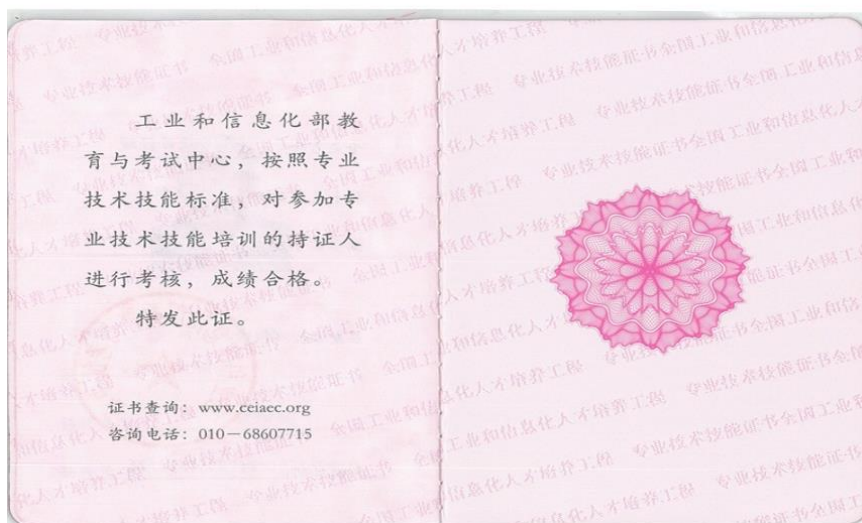 工业和信息化部教
育与考试中心，按照专业
技术技能标准，对参加专
业技术技能培训的持证人
进行考核，成绩合格。
特发此证。
证书查询：www.ceiaec.org
咨询电话：010－68607715
专业技术技能证书 全国工业和信息化人才培养工程